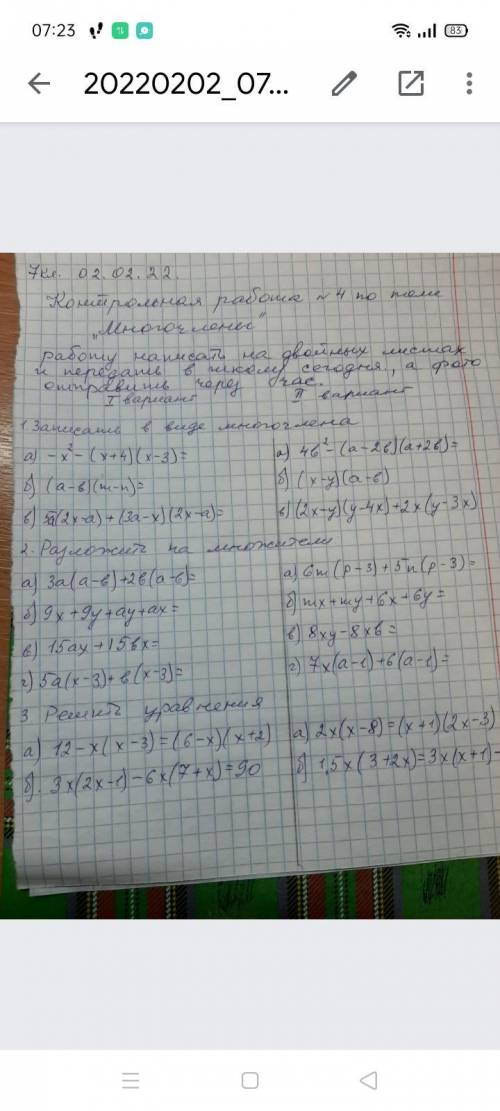 07:23
83
20220202_07...
7кл. 02.02.22.
Контрольная работа №4 по теме
„Многочлены"
работу написать на двойных листах
и передать в школу сегодня, а фото
отправить через час.
I вариант II вариант
1. Записать в виде многочлена
а) -x²-(x+4)(x-3)= а) 4в²-(а-2в)(а+2в)=
б) (а-в)(m-n)= б) (x-y)(а-в)
в) (2x-а)+(3а-x)(2x-а)= в) (2x-y)(y-4x)+2x(y-3x)
2. Разложить на множители
а) 3а(а-в)+2в(а-в)= а) 6m(p-3)+5n(p-3)=
б) 9x+9y+ay+ax= б) mx+my+6x+6y=
в) 15ax+15вx= в) 8xy-8xв=
г) 5а(x-3)+в(x-3)= г) 7x(а-1)+6(а-1)=
3. Решить уравнения
а) 12-x(x-3)=(6-x)(x+2) а) 2x(x-8)=(x+1)(2x-3)
б). 3x(2x-1)-6x(7+x)=90 б) 1,5x(3+2x)=3x(x+1)-